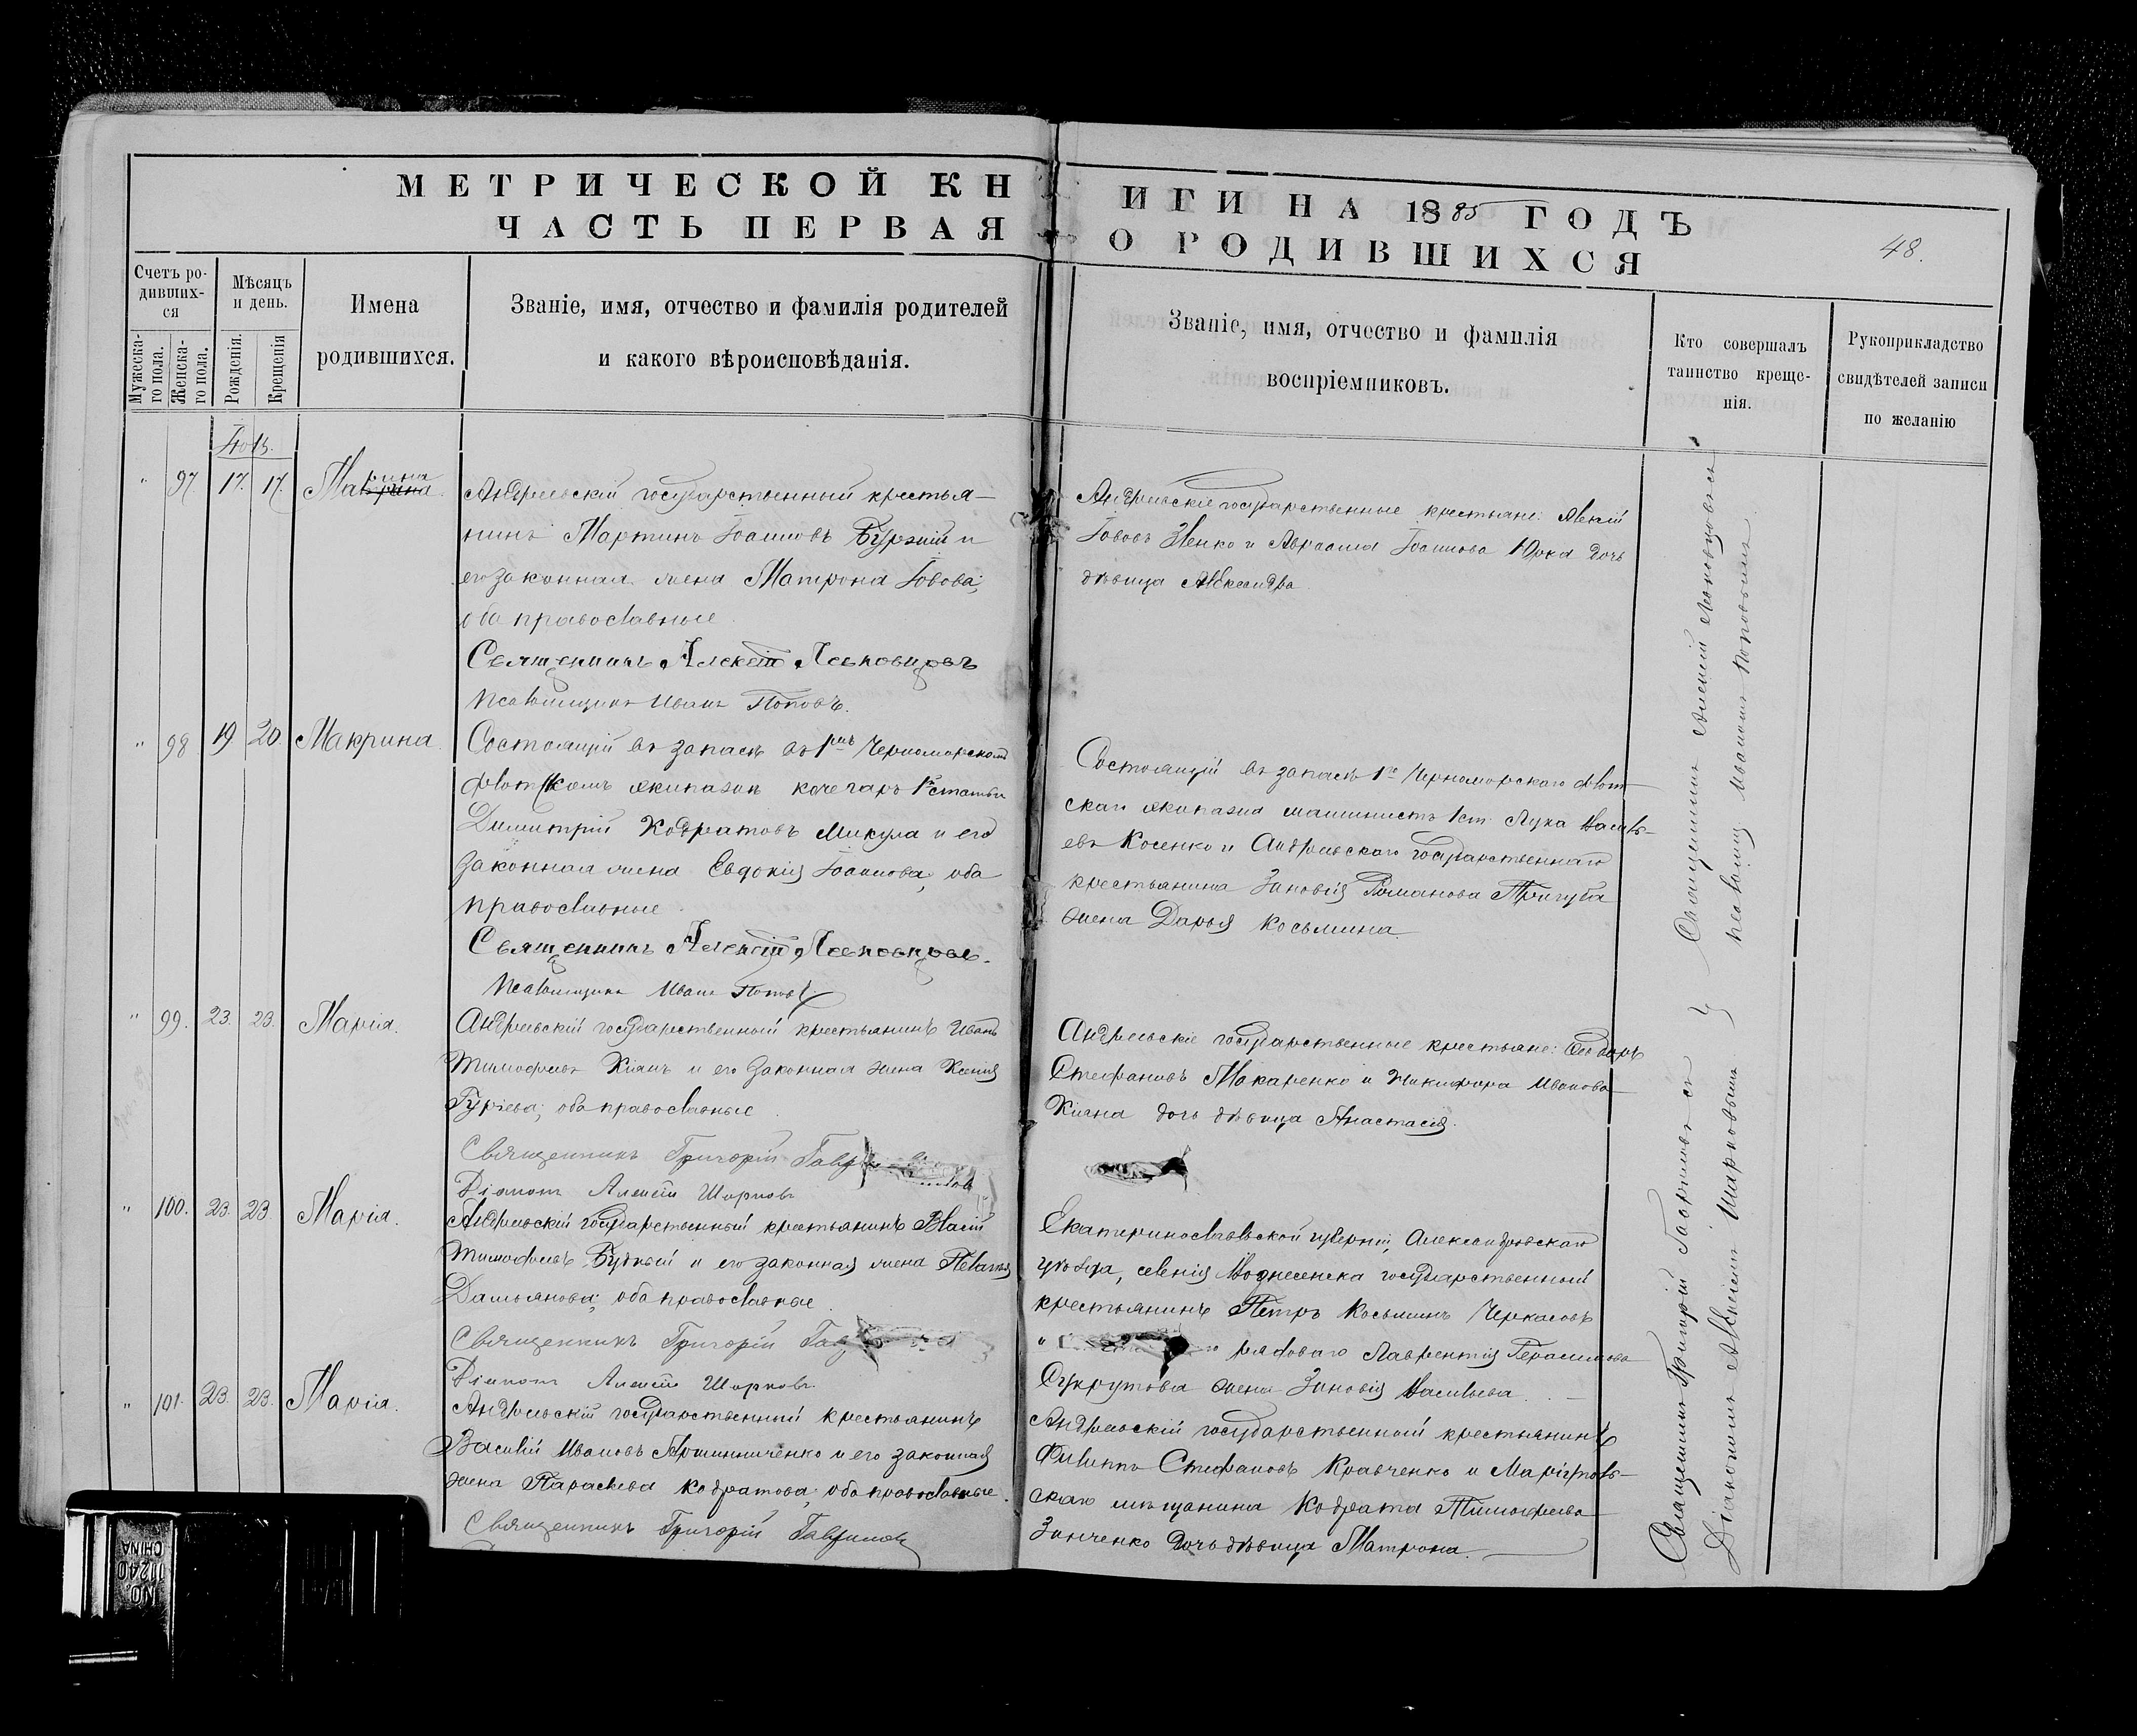 МЕТРИЧЕСКОЙ КНИГИ НА 1885 ГОДЪ
ЧАСТЬ ПЕРВАЯ О РОДИВШИХСЯ
48.
Счетъ ро-
дивших-
ся
Мужеска-
го пола.
Женска-
го пола.
Мѣсяцъ
и день.
Рожденія.
Крещенія
Имена
родившихся.
Званіе, имя, отчество и фамилія родителей
и какого вѣроисповѣданія.
Званіе, имя, отчество и фамилія
воспріемниковъ.
Кто совершалъ
таинство креще-
нія.
Рукоприкладство
свидѣтелей записи
по желанію
" 97 17. 17.
Андреевскій государственный крестья-
нинъ Мартинъ Іоанновъ и
его законная жена Матрона Іовова;
оба православные
Священникъ Алексій
Псаломщикъ Иванъ Поповъ.
Андреевскіе государственные крестьяне:
Іововъ и Авраама Іоаннова Юрка дочь
дѣвица Александра
" 98 19. 20. Макрина
Состоящій въ запасѣ въ 1мъ Черноморскомъ
флотскомъ экипажѣ кочегаръ 1й статьи
Димитрій Кодратовъ Микула и его
законная жена Евдокія Іоаннова, оба
православные
Священникъ Алексій
Псаломщикъ Иванъ Поповъ
Состоящій въ запасѣ 1го Черноморскаго флот-
скаго экипажа машинистъ 1 ст. Лука Василь-
евъ Косенко и Андреевскаго государственнаго
крестьянина Зиновія Романова Пригуба
жена Дарья Косьмина
" 99. 23. 23. Марія.
Андреевскій государственный крестьянинъ Иванъ
Тимофеевъ Кіянъ и его законная жена Ксенія
Гуріева; оба православные
Священникъ Григорій
Діаконъ Алексій
Андреевскіе государственные крестьяне: Ѳеодоръ
Стефановъ Макаренко и Никифора Иванова
Кіяна дочь дѣвица Анастасія.
" 100. 23. 23. Марія.
Андреевскій государственный крестьянинъ Власій
Тимофеевъ и его законная жена Пелагія
Дамьянова; оба православные
Священникъ Григорій
Діаконъ Алексій
Екатеринославской губерніи, Александровскаго
уѣзда, селенія Вознесенска государственный
крестьянинъ Петръ Косьминъ Черкасовъ
рядоваго Лаврентія Герасимова
жена Зиновія Васильева.
" 101. 23. 23. Марія.
Андреевскій государственный крестьянинъ
Василій Ивановъ и его законная
жена Параскева Кодратова; оба православные.
Священникъ Григорій Гавриловъ
Андреевскій государственный крестьянинъ
Филиппъ Стефановъ Кравченко и Маріуполь-
скаго мѣщанина Кодрата Тимофеева
Зинченко дочь дѣвица Матрона.
Священникъ Алексій
псаломщ. Иваномъ Поповымъ
Священникъ Григорій Гавриловъ съ
Діакономъ Алексіемъ